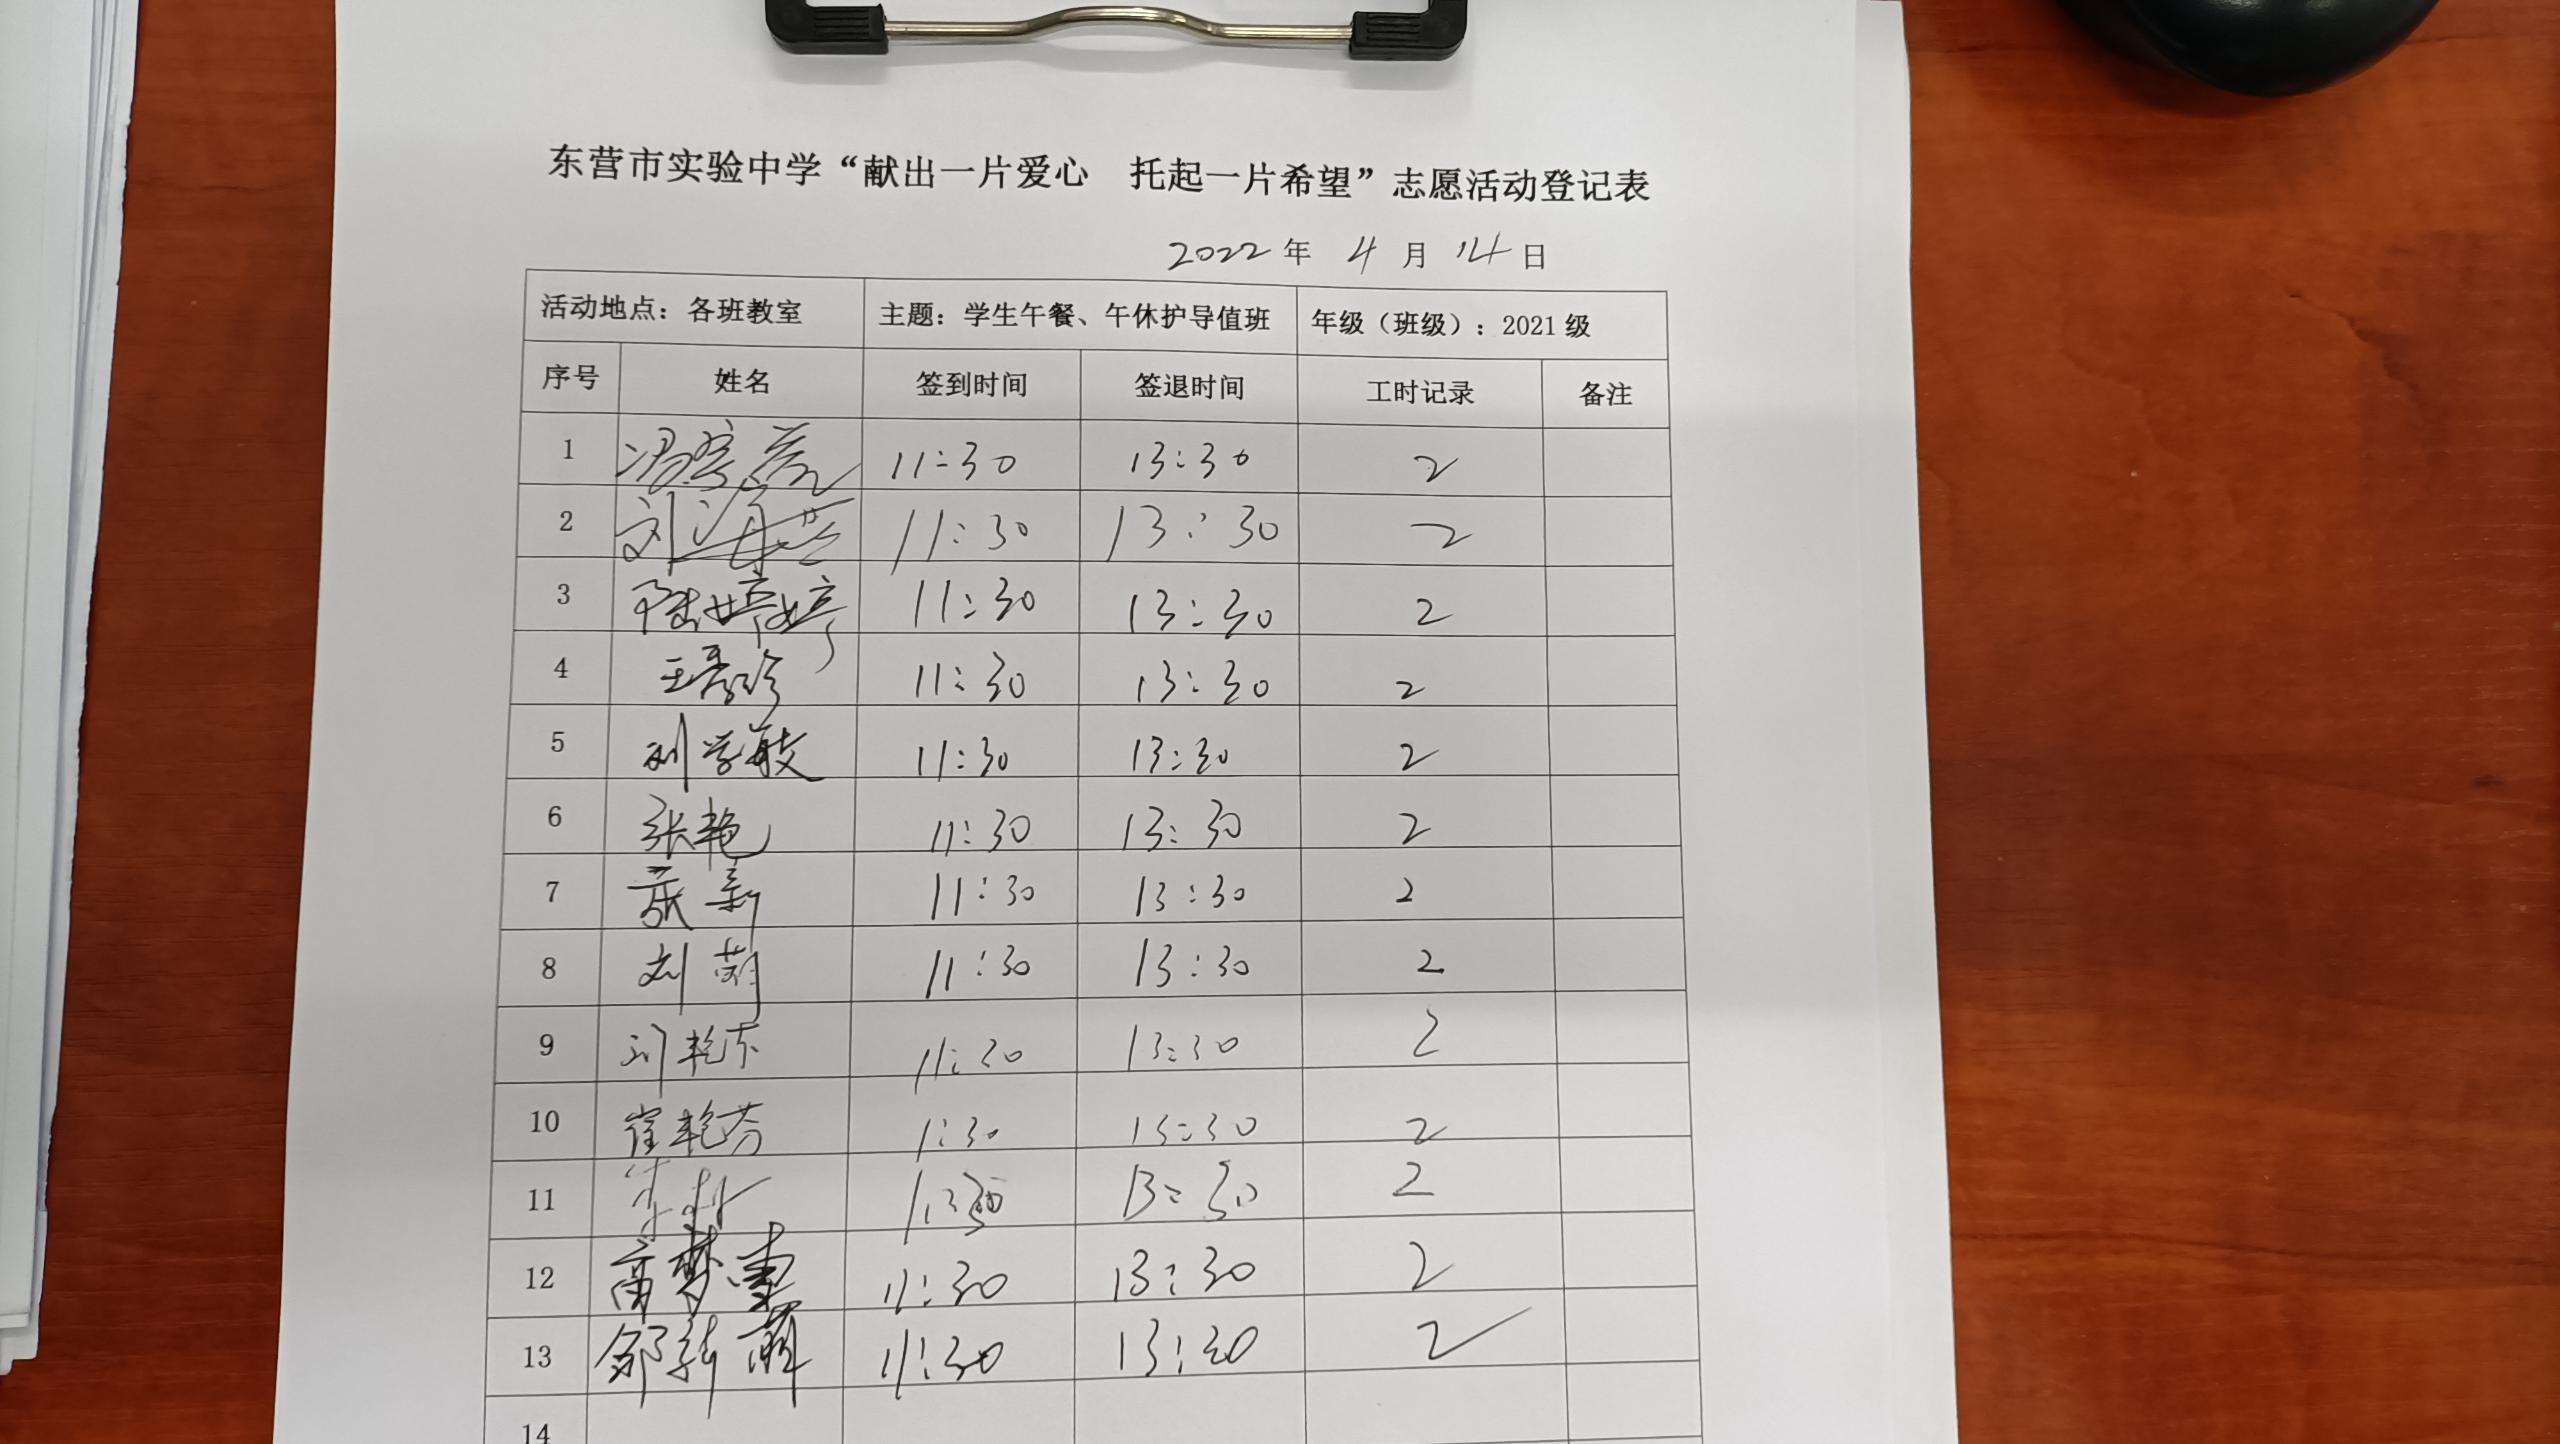 东营市实验中学“献出一片爱心 托起一片希望”志愿活动登记表
2022 年 4 月 14 日
活动地点：各班教室 主题：学生午餐、午休护导值班 年级（班级）：2021 级
序号 姓名 签到时间 签退时间 工时记录 备注
1 11:30 13:30 2
2 刘海 11:30 13:30 2
3 陆婷婷 11:30 13:30 2
4 王秀珍 11:30 13:30 2
5 刘学敏 11:30 13:30 2
6 张艳 11:30 13:30 2
7 新 11:30 13:30 2
8 刘萌 11:30 13:30 2
9 刘艳东 11:30 13:30 2
10 崔艳芬 1:30 13:30 2
11 11:30 13:30 2
12 高梦惠 11:30 13:30 2
13 邹新萌 11:30 13:30 2
14